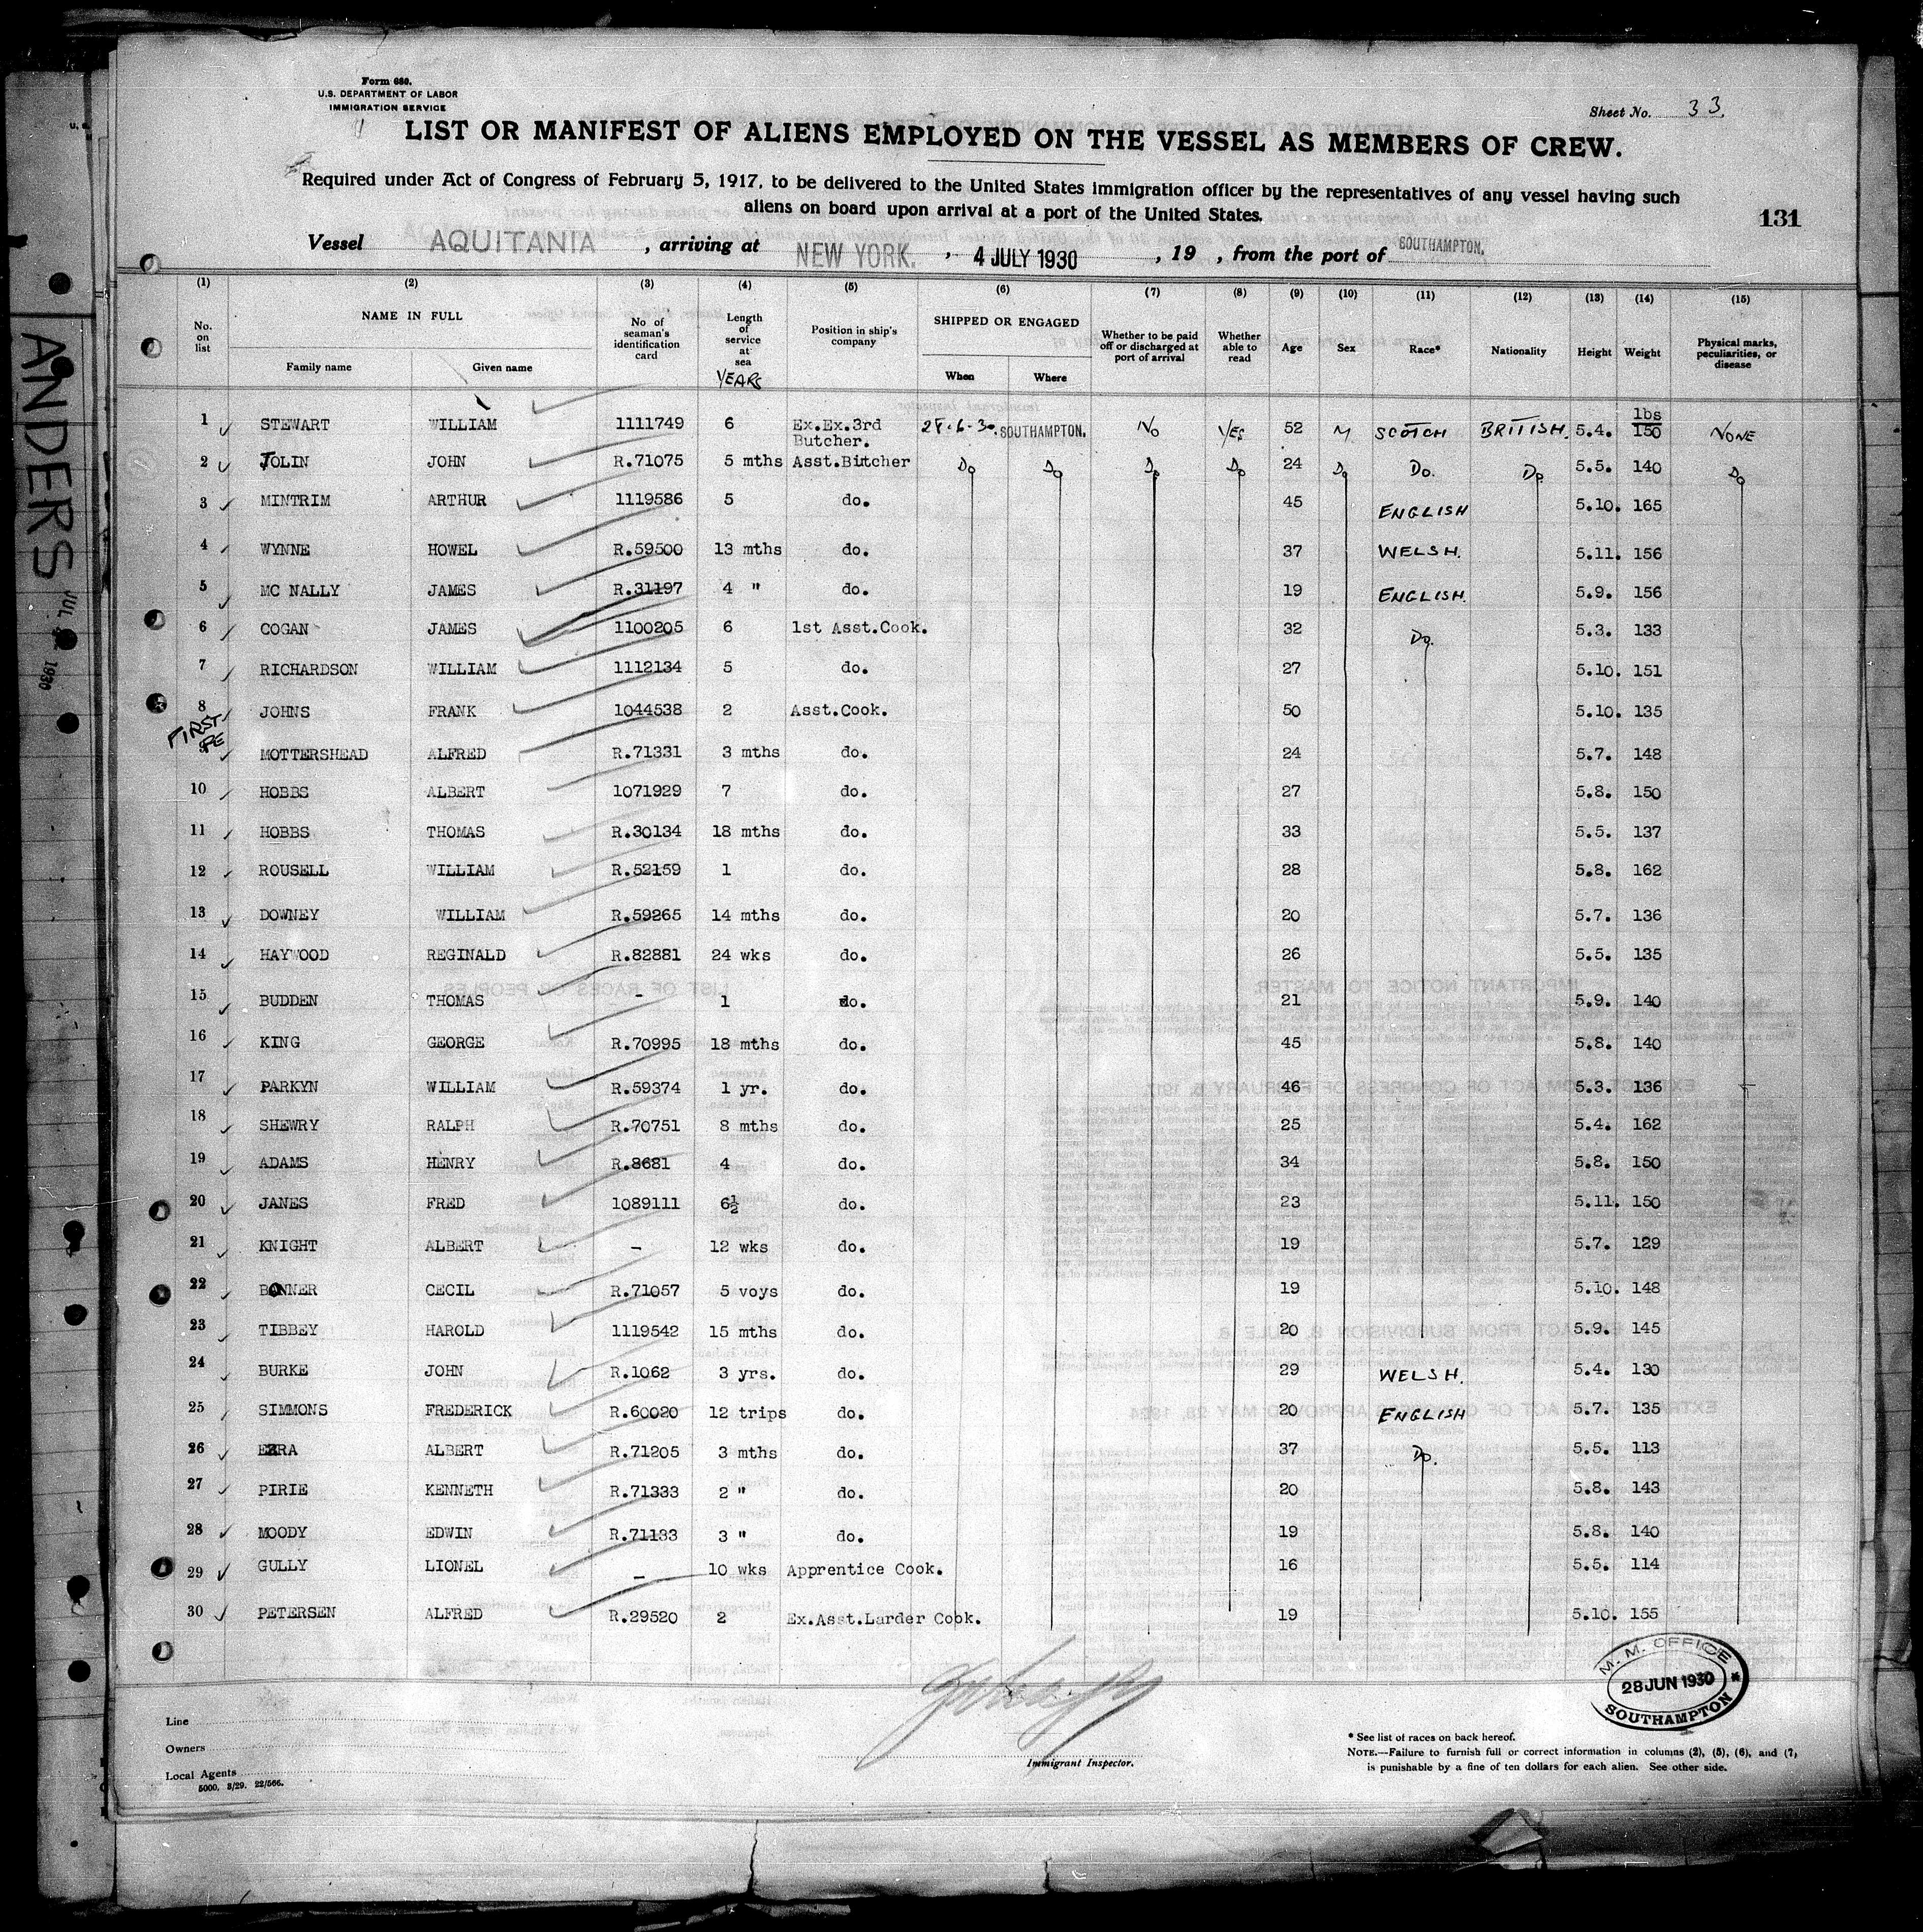 Form 680.
U.S. DEPARTMENT OF LABOR
IMMIGRATION SERVICE
Sheet No. 33.
LIST OR MANIFEST OF ALIENS EMPLOYED ON THE VESSEL AS MEMBERS OF CREW.
Required under Act of Congress of February 5, 1917, to be delivered to the United States immigration officer by the representatives of any vessel having such
aliens on board upon arrival at a port of the United States.
131
Vessel AQUITANIA, arriving at NEW YORK. , 4 JULY 1930 , 19 , from the port of SOUTHAMPTON.
(1) (2) (3) (4) (5) (6) (7) (8) (9) (10) (11) (12) (13) (14) (15)
No. on list NAME IN FULL Family name Given name No of seaman's identification card Length of service at sea YEARS Position in ship's company SHIPPED OR ENGAGED When Where Whether to be paid off or discharged at port of arrival Whether able to read Age Sex Race* Nationality Height Weight Physical marks, peculiarities, or disease
1 STEWART WILLIAM 1111749 6 Ex.Ex.3rd Butcher. 28.6-30. SOUTHAMPTON. No YES 52 M SCOTCH BRITISH. 5.4. lbs 150 NONE
2 TOLIN JOHN R.71075 5 mths Asst.Butcher Do Do Do Do 24 Do Do. Do 5.5. 140 Do
3 MINTRIM ARTHUR 1119586 5 do. 45 ENGLISH 5.10. 165
4 WYNNE HOWEL R.59500 13 mths do. 37 WELSH. 5.11. 156
5 MC NALLY JAMES R.31197 4 " do. 19 ENGLISH. 5.9. 156
6 COGAN JAMES 1100205 6 1st Asst.Cook. 32 Do. 5.3. 133
7 RICHARDSON WILLIAM 1112134 5 do. 27 5.10. 151
8 JOHNS FRANK 1044538 2 Asst.Cook. 50 5.10. 135
FIRST
MOTTERSHEAD ALFRED R.71331 3 mths do. 24 5.7. 148
10 HOBBS ALBERT 1071929 7 do. 27 5.8. 150
11 HOBBS THOMAS R.30134 18 mths do. 33 5.5. 137
12 ROUSELL WILLIAM R.52159 1 do. 28 5.8. 162
13 DOWNEY WILLIAM R.59265 14 mths do. 20 5.7. 136
14 HAYWOOD REGINALD R.82881 24 wks do. 26 5.5. 135
15 BUDDEN THOMAS - 1 do. 21 5.9. 140
16 KING GEORGE R.70995 18 mths do. 45 5.8. 140
17 PARKYN WILLIAM R.59374 1 yr. do. 46 5.3. 136
18 SHEWRY RALPH R.70751 8 mths do. 25 5.4. 162
19 ADAMS HENRY R.8681 4 do. 34 5.8. 150
20 JANES FRED 1089111 6½ do. 23 5.11. 150
21 KNIGHT ALBERT - 12 wks do. 19 5.7. 129
22 BONNER CECIL R.71057 5 voys do. 19 5.10. 148
23 TIBBEY HAROLD 1119542 15 mths do. 20 5.9. 145
24 BURKE JOHN R.1062 3 yrs. do. 29 WELSH. 5.4. 130
25 SIMMONS FREDERICK R.60020 12 trips do. 20 ENGLISH 5.7. 135
26 EZRA ALBERT R.71205 3 mths do. 37 Do. 5.5. 113
27 PIRIE KENNETH R.71333 2 " do. 20 5.8. 143
28 MOODY EDWIN R.71133 3 " do. 19 5.8. 140
29 GULLY LIONEL - 10 wks Apprentice Cook. 16 5.5. 114
30 PETERSEN ALFRED R.29520 2 Ex.Asst.Larder Cook. 19 5.10. 155
M. M. OFFICE
28 JUN 1930
SOUTHAMPTON
Line
Owners
Local Agents
5000, 3/29. 22/566.
Immigrant Inspector.
* See list of races on back hereof.
NOTE.—Failure to furnish full or correct information in columns (2), (5), (6), and (7,
is punishable by a fine of ten dollars for each alien. See other side.
ANDERS
JUL 1930